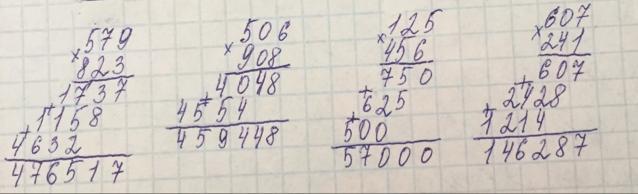 579
×
823
1737
+
1158
+
4632
476517
506
×
908
4048
+
4554
459448
125
×
456
750
+
625
+
500
57000
607
×
241
607
+
2428
+
1214
146287